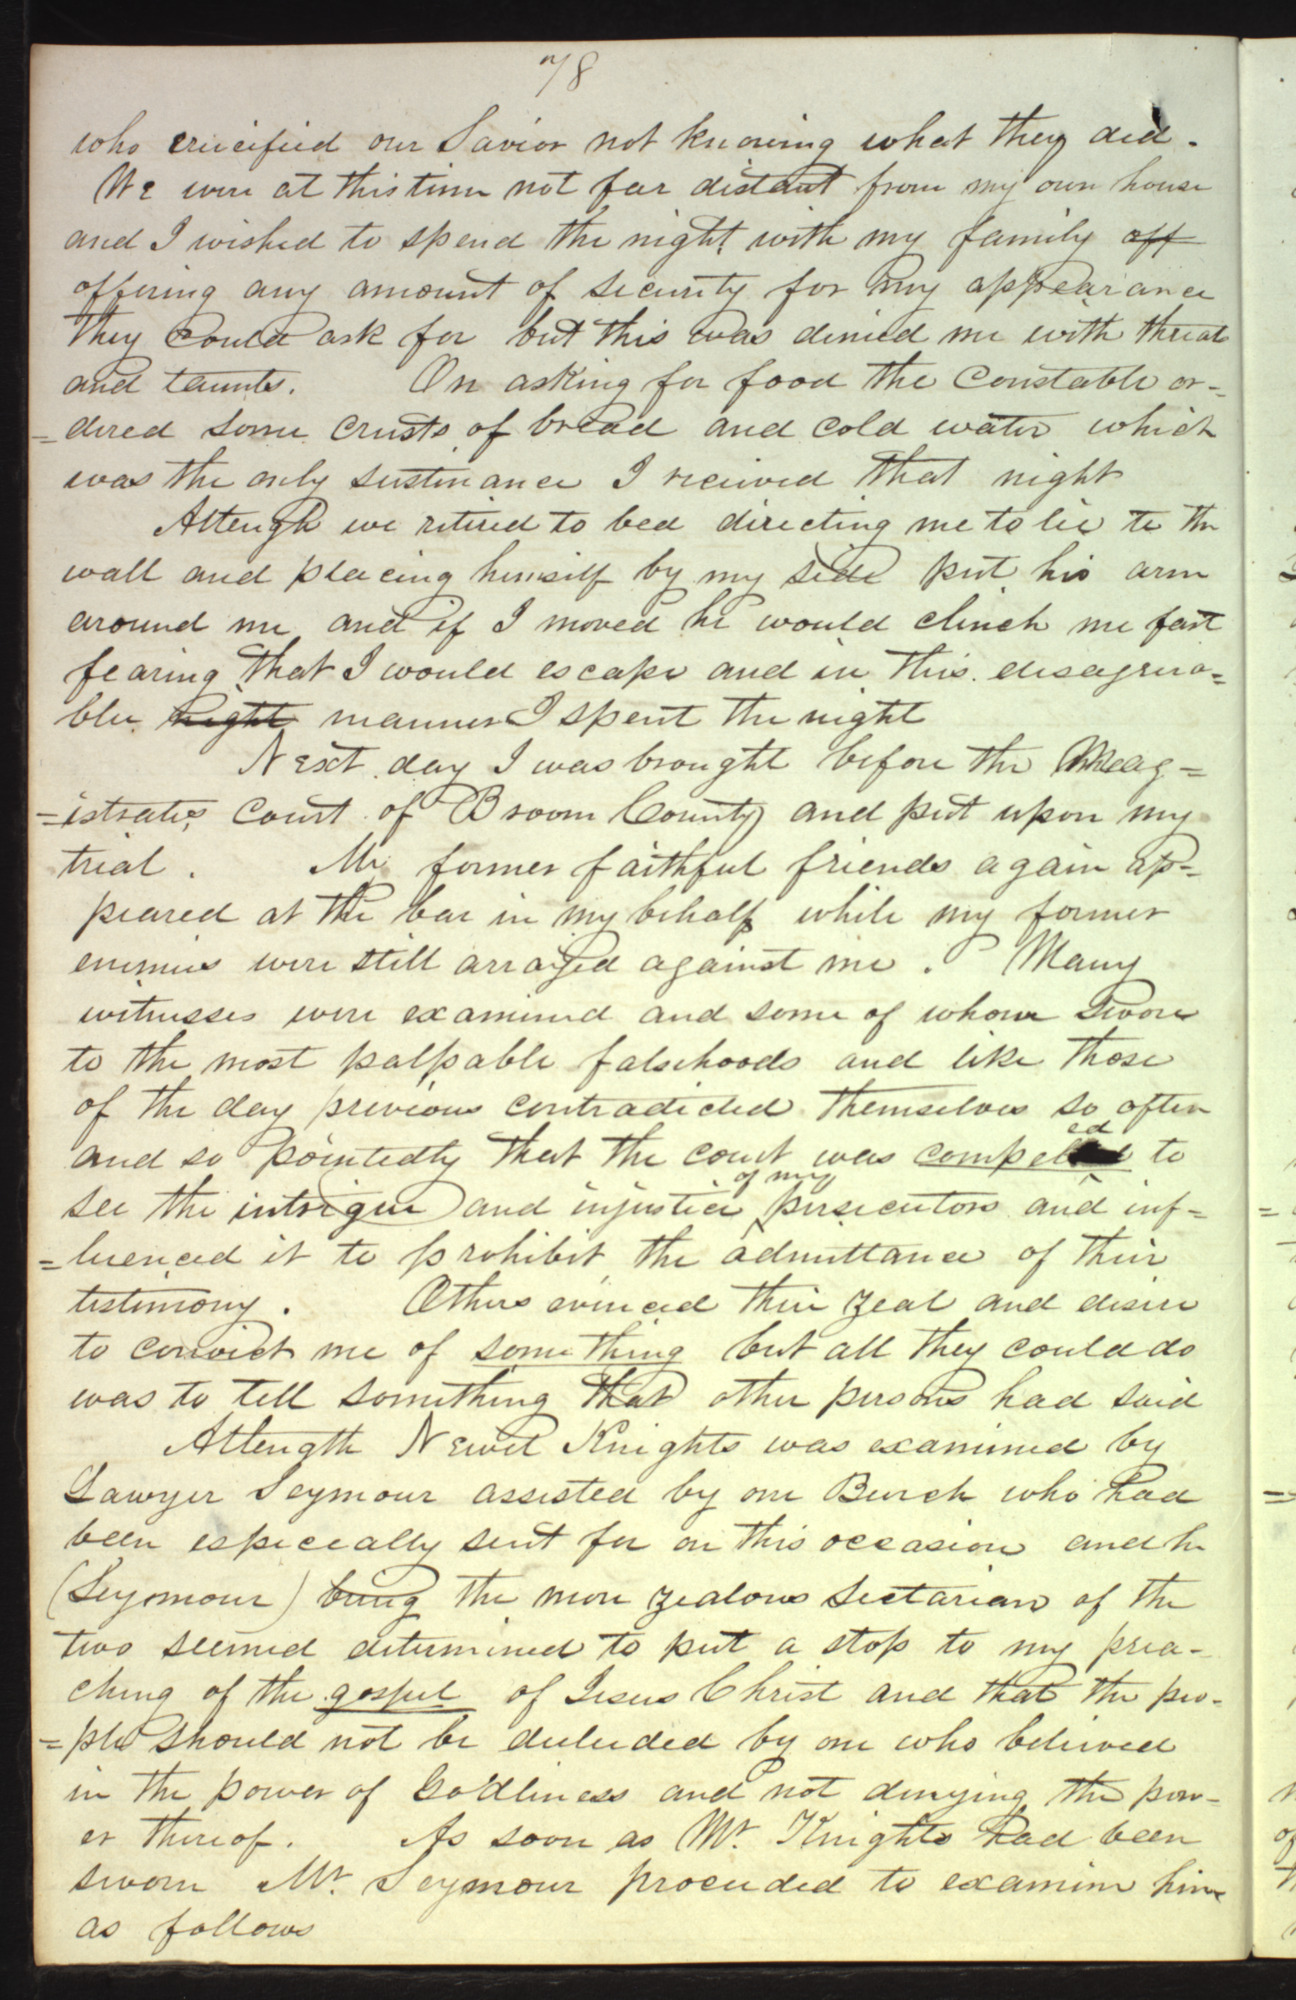 78
who crucified our Savior not knowing what they did.
We were at this time not far distant from my own house
and I wished to spend the night with my family off
offering any amount of security for my appearance
they could ask for but this was denied me with threats
and taunts. On asking for food the Constable or-
=dered some crusts of bread and cold water which
was the only sustinance I received that night
Atlength we retired to bed directing me to lie to the
wall and placing himself by my side put his arm
around me and if I moved he would clinch me fast
fearing that I would escape and in this disagreea=
ble night manner I spent the night
Next day I was brought before the Mag=
=istrates court of Broom County and put upon my
trial. My former faithful friends again ap=
peared at the bar in my behalf while my former
enimies were still arrayed against me. Many
witnesses were examined and some of whom swore
to the most palpable falsehoods and like those
of the day previous contradicted themselves so often
and so pointedly that the court was compelled to
see the intrigue and injustice of my persecutors and inf=
=luenced it to prohibit the admittance of their
testimony. Others evinced their zeal and desire
to convict me of some thing but all they could do
was to tell something that other persons had said
Atlength Newel Knights was examined by
Lawyer Seymour assisted by one Burch who had
been especially sent for on this occasion and he
(Seymour) being the more zealous sectarian of the
two seemed determined to put a stop to my prea-
ching of the gospel of Jesus Christ and that the peo-
=ple should not be deluded by one who believed
in the power of Godliness and not denying the pow-
er thereof. As soon as Mr. Knights had been
sworn Mr. Seymour proceeded to examine him
as follows